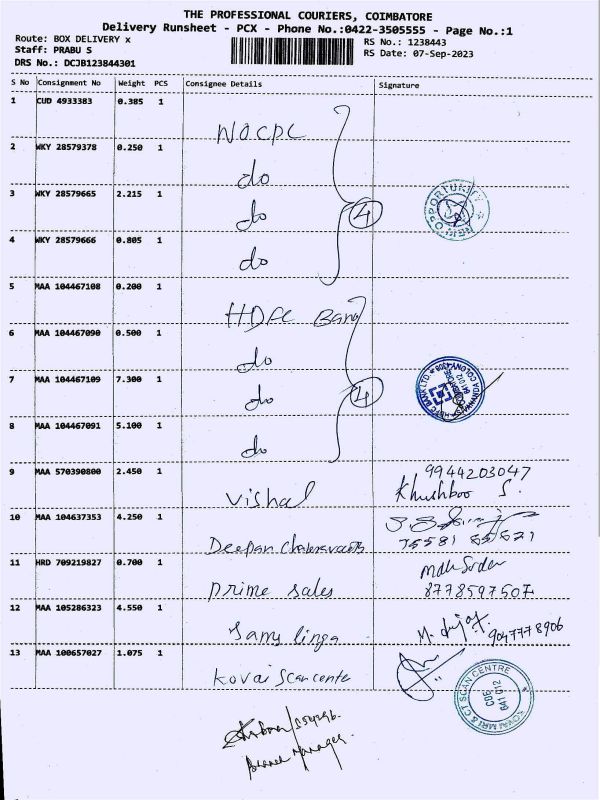 THE PROFESSIONAL COURIERS, COIMBATORE
Delivery Runsheet - PCX - Phone No.:0422-3505555 - Page No.:1
Route: BOX DELIVERY x
Staff: PRABU S
DRS No.: DCJB123844301
RS No.: 1238443
RS Date: 07-Sep-2023
S No Consignment No Weight PCS Consignee Details Signature
1 CUD 4933383 0.385 1
WOCPC
2 WKY 28579378 0.250 1
do
3 WKY 28579665 2.215 1
do
4
NEW OPPORTUNITY
4 WKY 28579666 0.805 1
do
5 MAA 104467108 0.200 1
HDFC Bang
6 MAA 104467090 0.500 1
do
7 MAA 104467109 7.300 1
do
4
HDFC BANK LTD.
8 MAA 104467091 5.100 1
do
9 MAA 570390800 2.450 1
Vishal
9944203047
Khushboo S.
10 MAA 104637353 4.250 1
Deepan
11 HRD 709219827 0.700 1
prime sales
8778597507
12 MAA 105286323 4.550 1
Samy linga
9047778906
13 MAA 100657027 1.075 1
Kovai Scan cente
KOVAI MRI & CT SCAN CENTRE
CBE
641 012
Manager